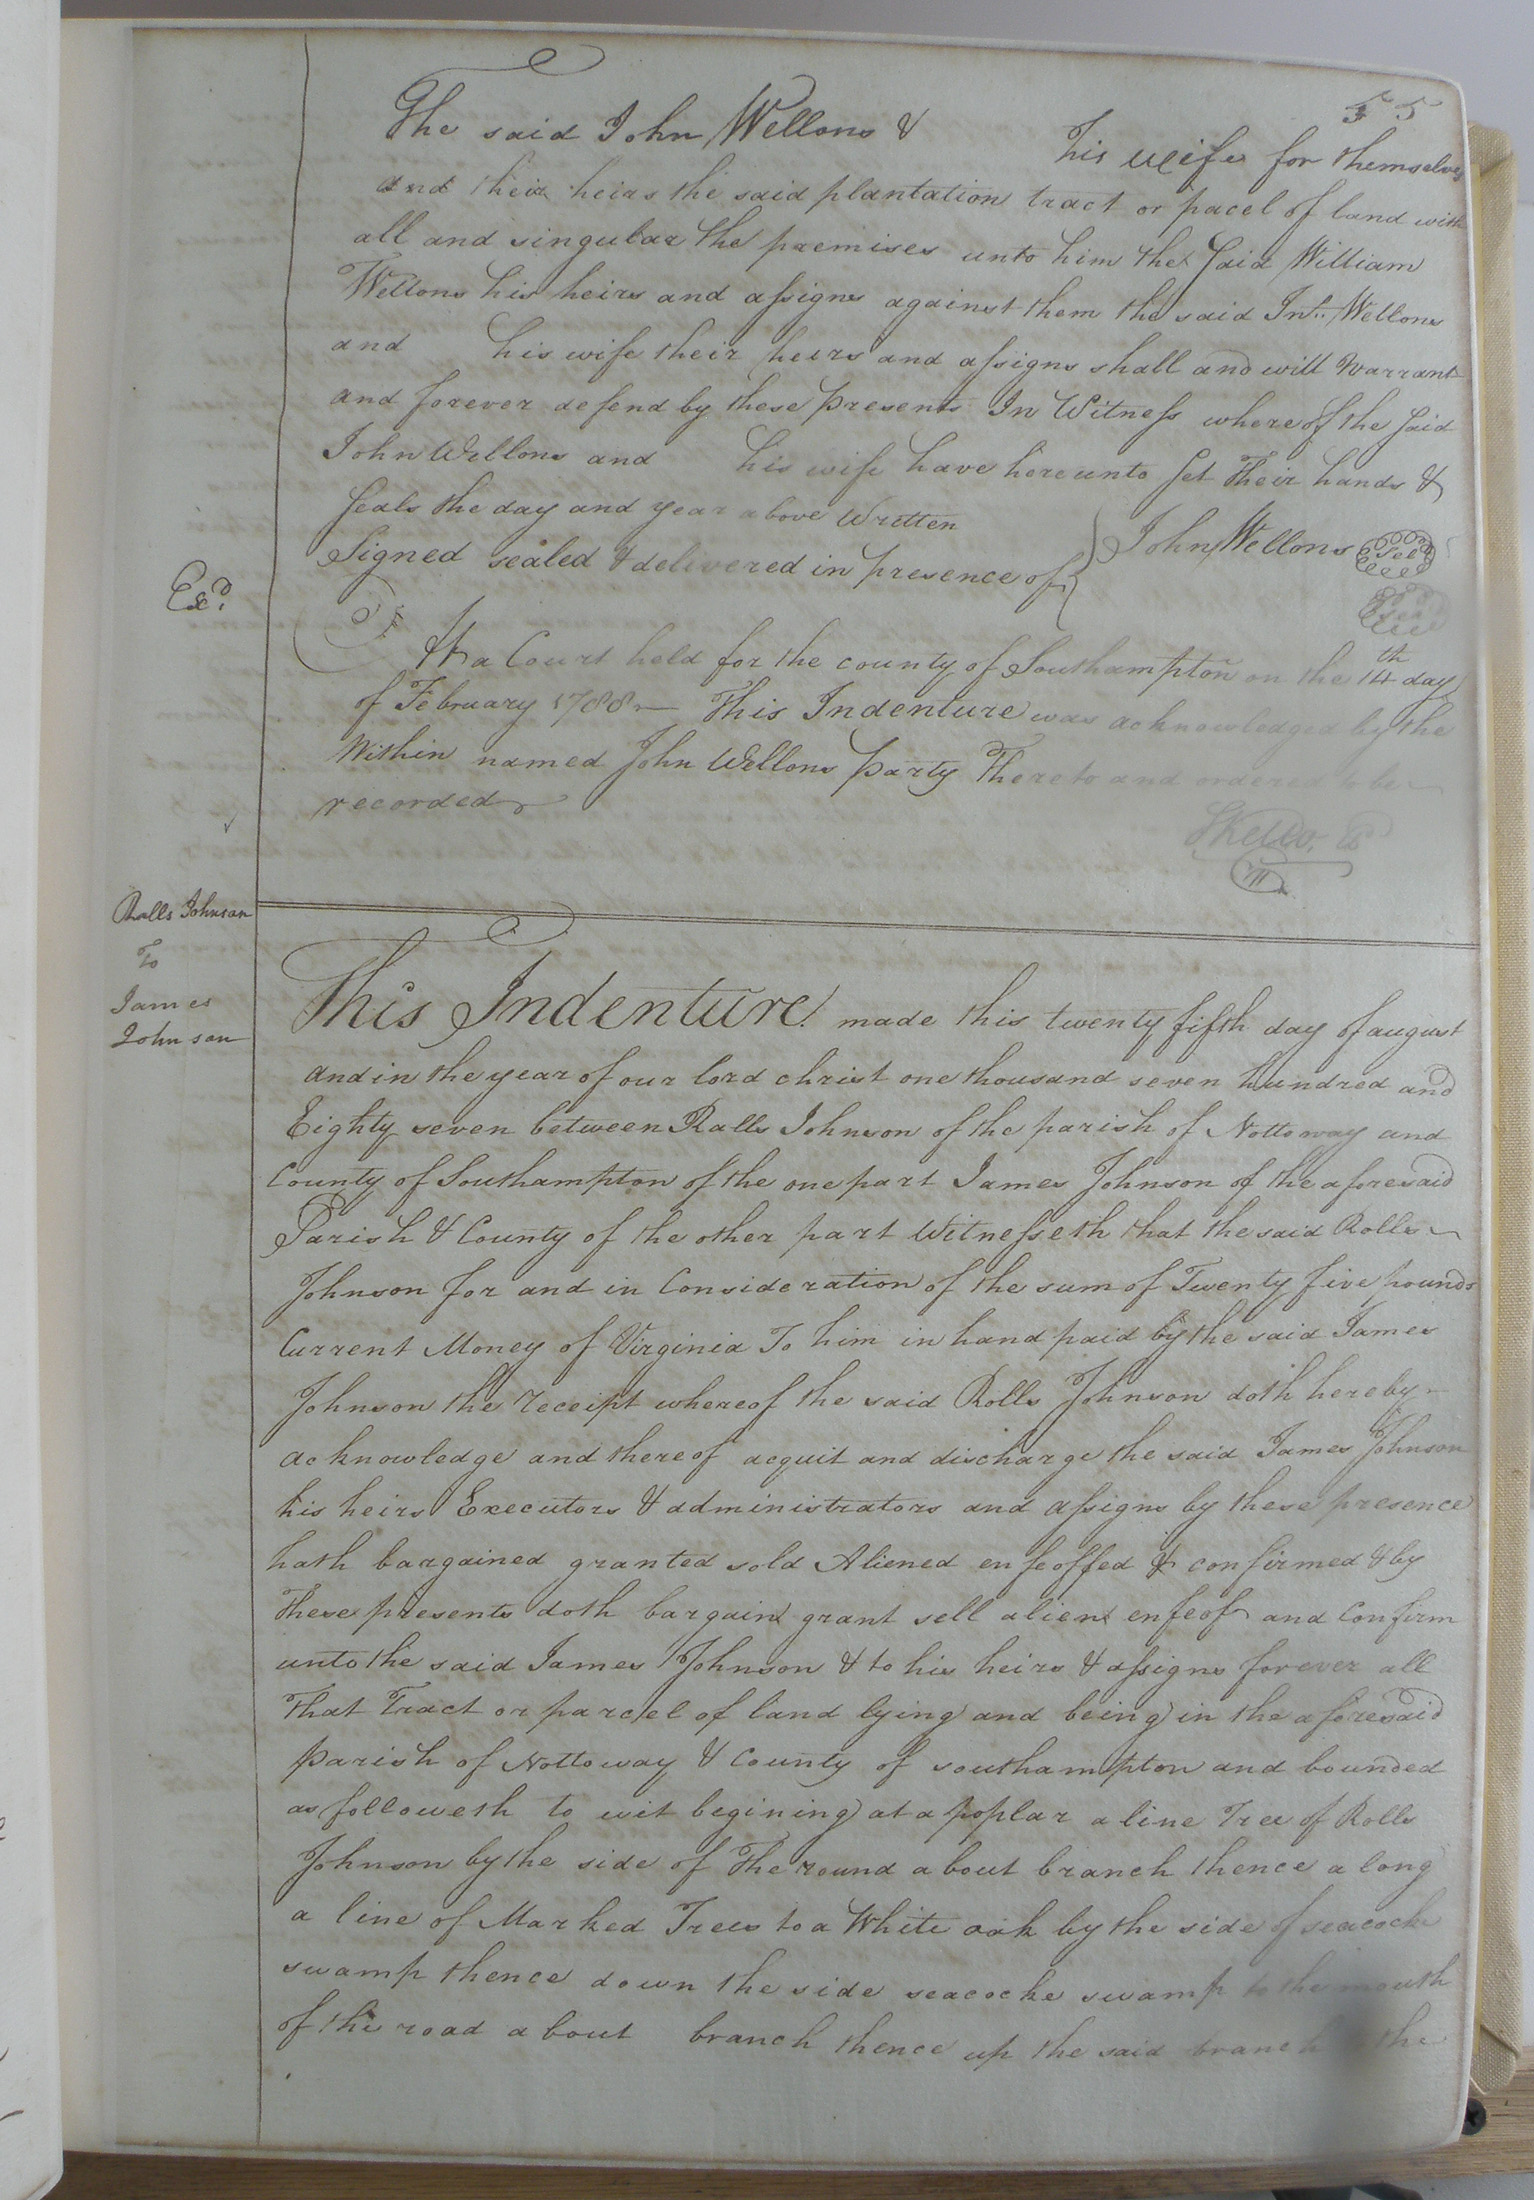 55
The said John Wellons & his wife for themselves
and their heirs the said plantation tract or pacel of land with
all and singular the premises unto him the said William
Wellons his heirs and assigns against them the said Jnº. Wellons
and his wife their heirs and assigns shall and will warrant
and forever defend by these presents In Witness whereof the said
John Wellons and his wife have hereunto set their hands &
seals the day and year above written
Signed sealed & delivered in presence of } John Wellons Seal
Seal
Exd.
At a Court held for the county of Southampton on the 14th day
of February 1788 — This Indenture was acknowledged by the
Within named John Wellons party Thereto and ordered to be
recorded
Rolls Johnson
To
James
Johnson
This Indenture made this twenty fifth day of august
and in the year of our lord christ one thousand seven hundred and
Eighty seven between Rolls Johnson of the parish of Nottoway and
County of Southampton of the one part James Johnson of the aforesaid
Parish & County of the other part Witnesseth that the said Rolls
Johnson for and in Consideration of the sum of Twenty five pounds
Current Money of Virginia To him in hand paid by the said James
Johnson the receipt whereof the said Rolls Johnson doth hereby
acknowledge and thereof acquit and discharge the said James Johnson
his heirs Executors & administrators and assigns by these presence
hath bargained granted sold Aliened enfeoffed & confirmed & by
These presents doth bargain grant sell alien enfeof and Confirm
unto the said James Johnson & to his heirs & assigns forever all
That Tract or parcel of land lying and being in the aforesaid
parish of Nottoway & County of southampton and bounded
as followeth to wit begining at a poplar a line Tree of Rolls
Johnson by the side of The round about branch thence along
a line of Marked Trees to a White oak by the side of seacocke
swamp thence down the side seacocke swamp to the mouth
of the road about branch thence up the said branch the